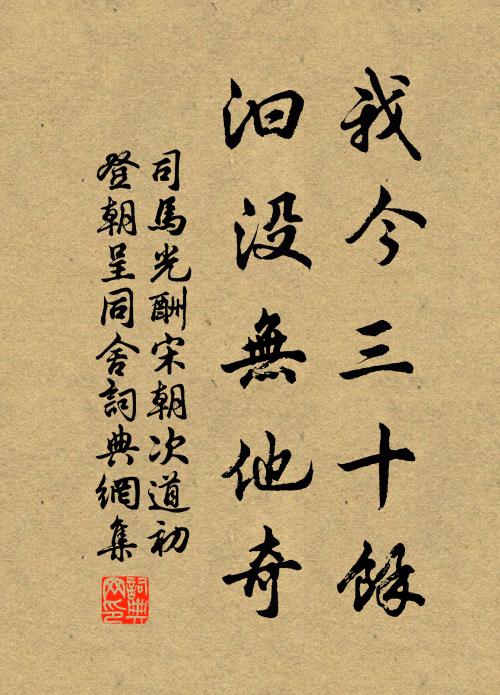 我今三十餘
汩没無他奇
司馬光酬宋朝次道初
登朝呈同舍詞典網集
詞典
网印